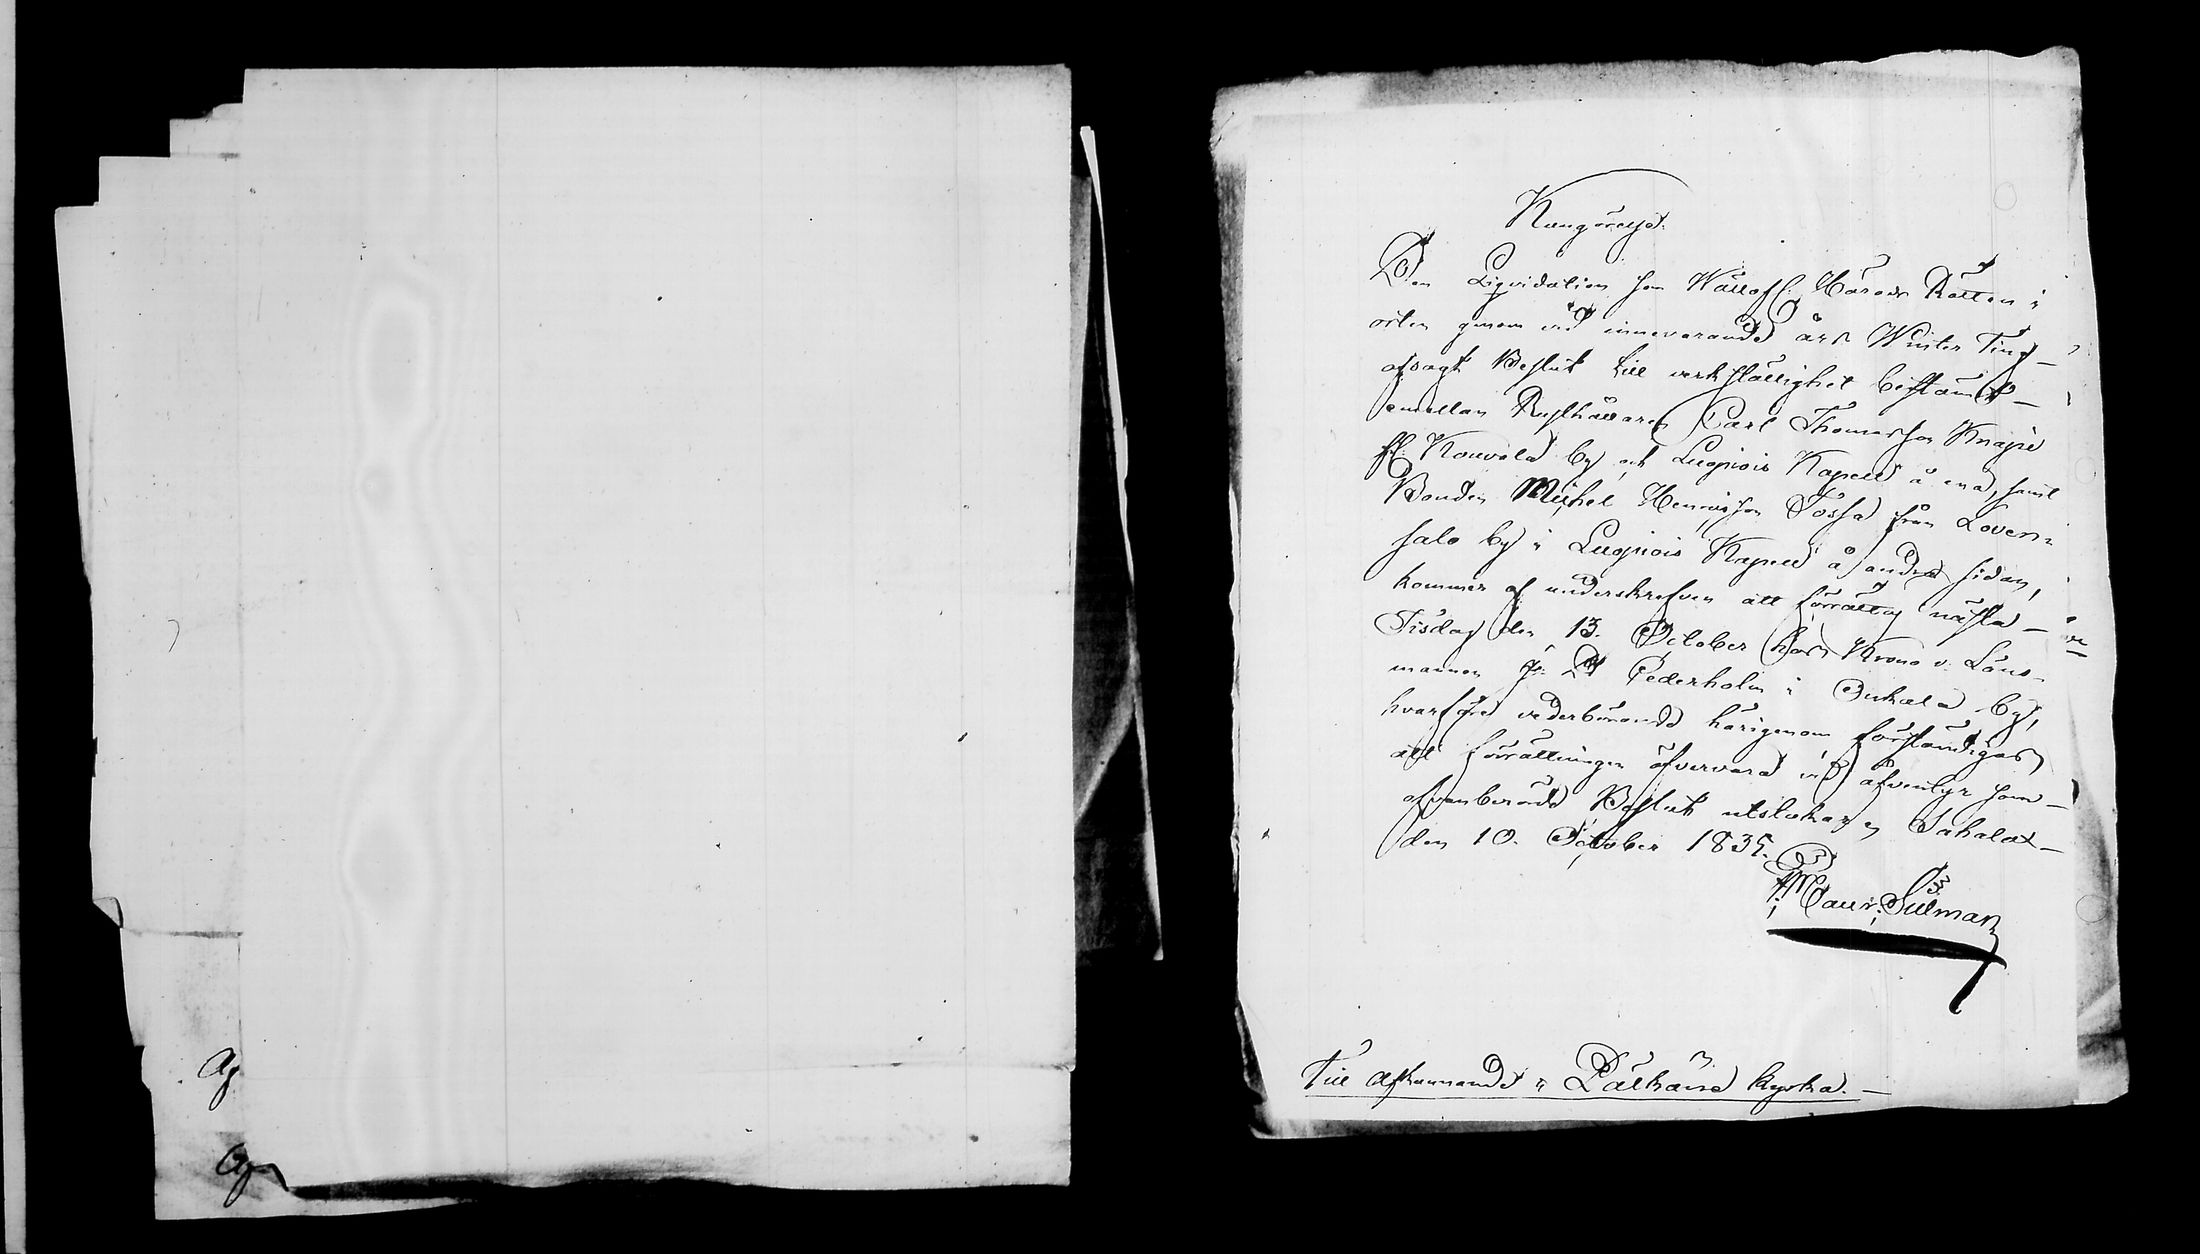 Kungörelse.
Den Liqvidation som Wällofl. Härads Rätten i
orten genom vid innevarande års Winter Ting
afsagt Beslut till verkställighet bestämt
emellan Rusthållaren Carl Thomasson Knape
fr. by och Luopiois Kapell å ena, samt
Bonden Michel Henricsson från
salo by i Luopiois Kapell å andra sidan,
kommer af underskrefven att förrättas nästa
Tisdag den 13. October hos Krono v. Läns-
mannen Cederholm i Onkala by,
hvarföre vederbörande härigenom förständigas
att förrättningen öfvervara vid äfventyr som
ofvanberörde Beslut utstakar, Sahalax
den 10. October 1835.
Maur. Silman
Till afkunnande i Pälkäne kyrka.